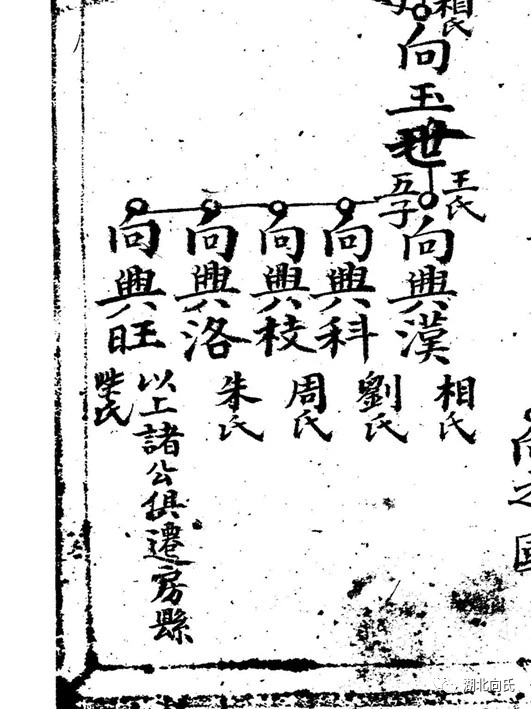 相氏
向玉
王氏
五子
向興漢
相氏
向興科
劉氏
向興枝
周氏
向興洛
朱氏
向興旺
以上諸公俱遷房縣
湖北向氏